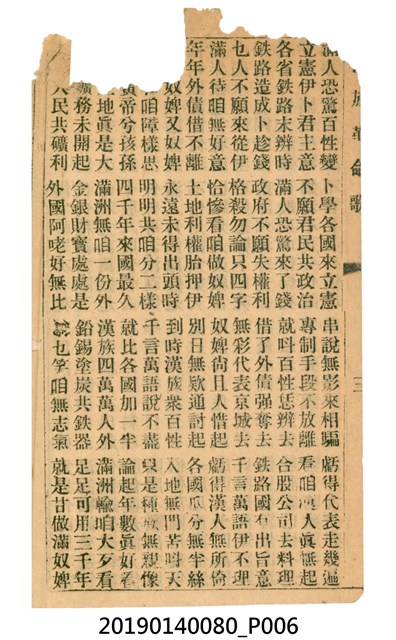 族革命歌 三
滿人恐驚百性變 卜學各國來立憲 串說無影來相騙 虧得代表走幾遍
立憲伊卜君主意 不願君民共政治 專制手段不放離 看咱漢人眞無起
各省鐵路末辨時 滿人恐驚來了錢 就呌百性恁辨去 合股公司去料理
鐵路造成卜趁錢 政府不願失權利 借了外債强奪去 鐵路國有出旨意
乜人不願來從伊 格殺勿論只四字 無彩代表京城去 千言萬語伊不理
滿人待咱無好意 恰慘看咱做奴婢 奴婢尙且人惜起 虧得漢人無所倚
年年外債借不離 土地利權胎押伊 別日無欵通討起 各國瓜分無半絲
奴婢又奴婢 永遠未得出頭時 到時漢族衆百性 入地無門苦呌天
咱障樣思 明明共咱分二樣 千言萬語說不盡 是種族無親像
黃帝兮孩孫 四千年來國最久 就比各國加一半 論起年數眞好看
地眞是大 滿洲無咱一份外 漢族四萬萬人外 滿洲輸咱大歹看
礦務未開起 金銀財寶處處是 鉛錫塗炭共鉄器 足足可用三千年
人民共礦利 外國阿咾好無比 乜笑咱無志氣 就是甘做滿奴婢
20190140080_P006